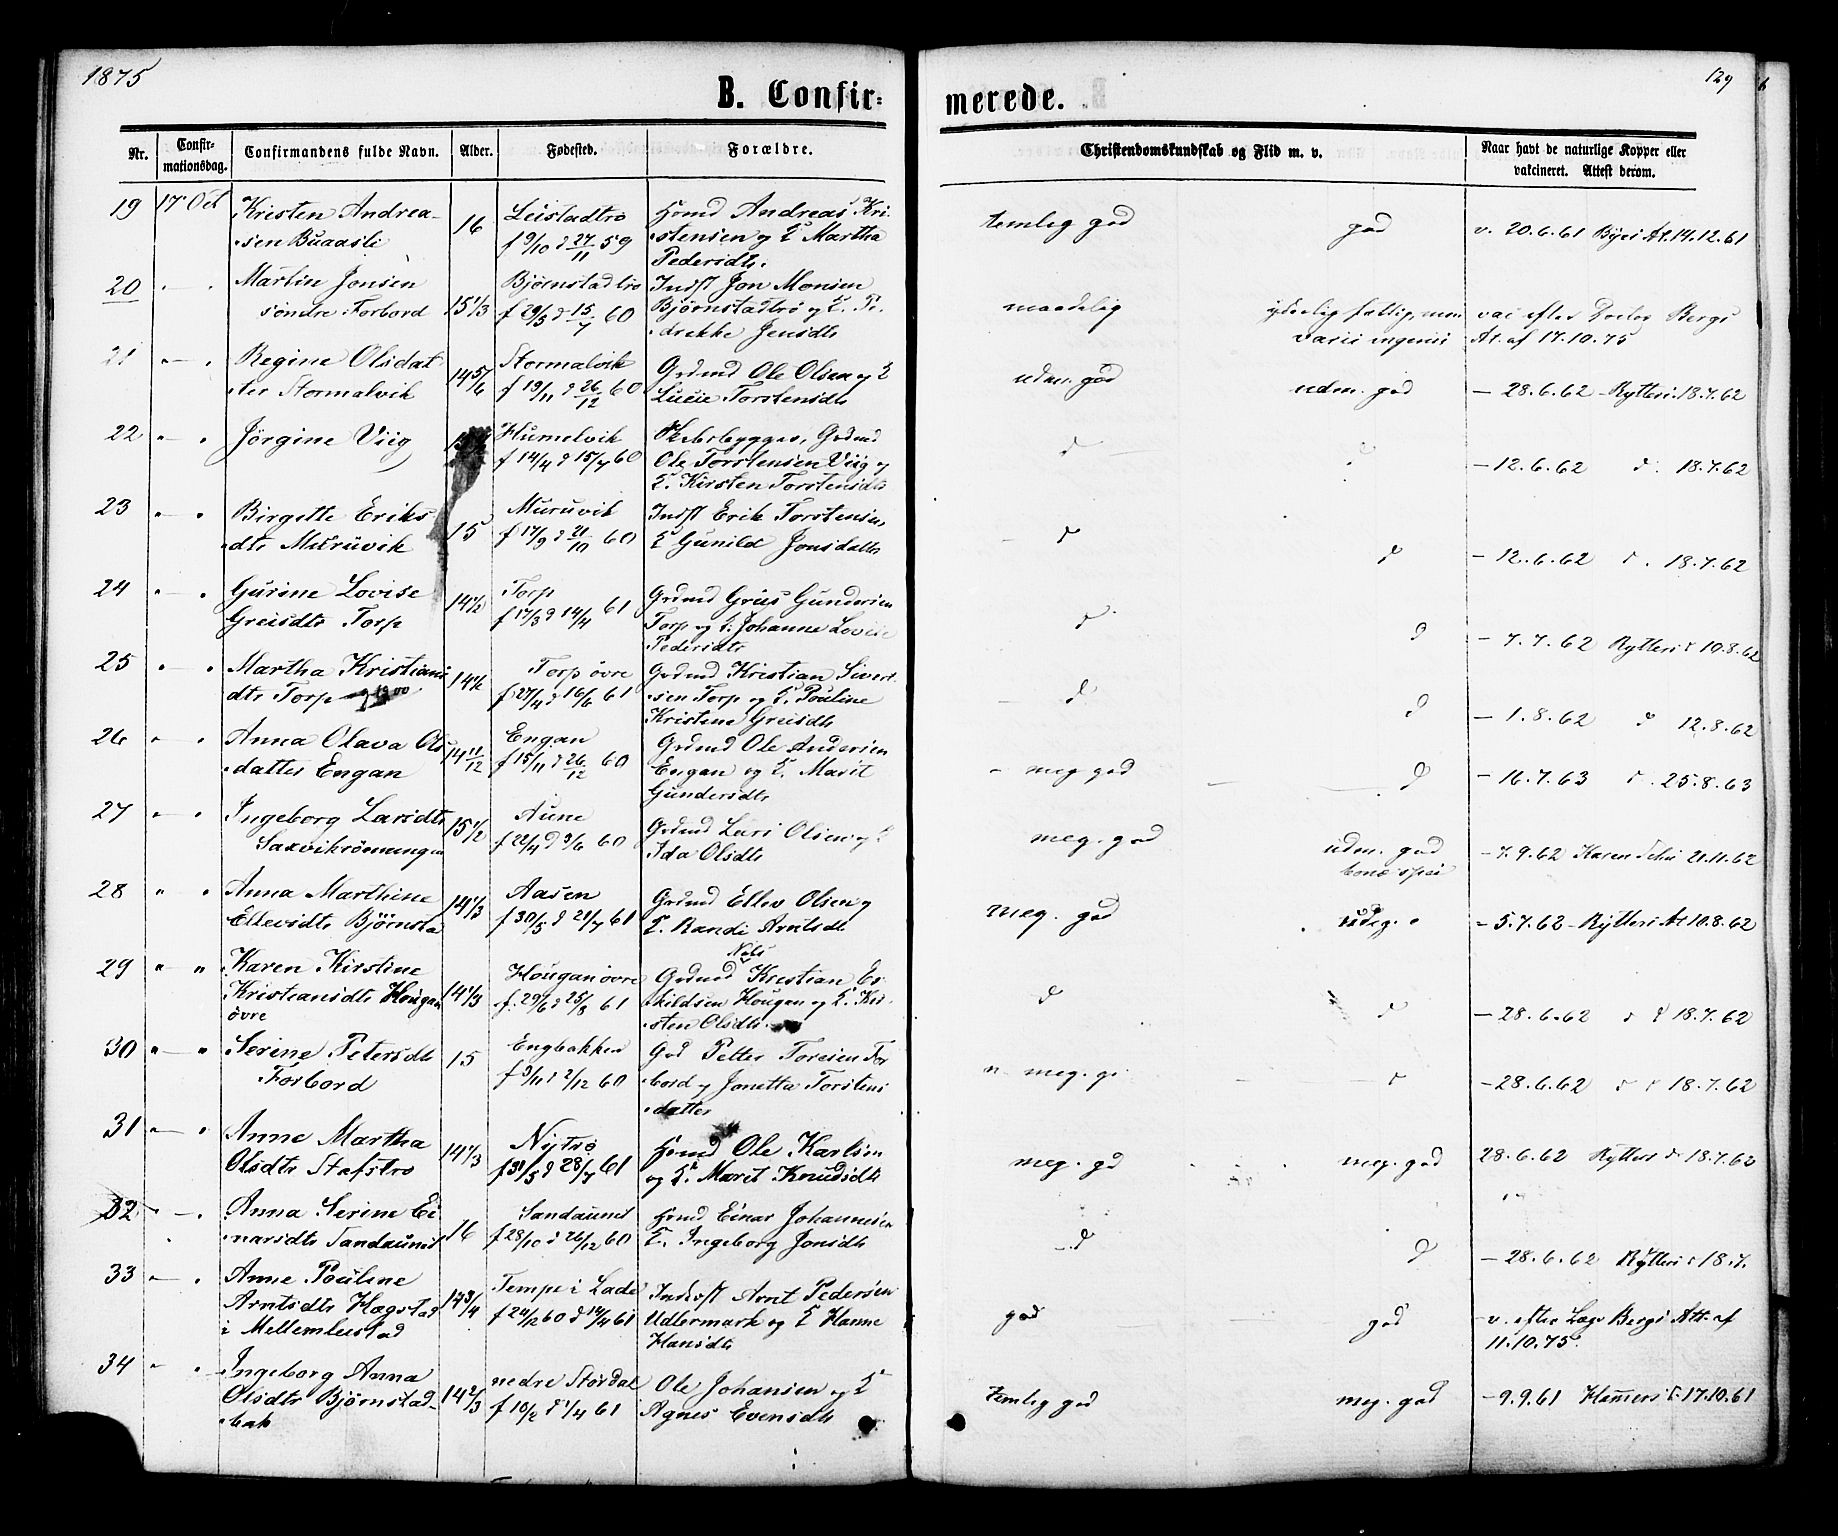 1875
129
B. Confir-
merede.
Nr.
Confirmationsdag.
Confirmandens fulde Navn.
Alder.
Fødested.
Forældre.
Christendomskundskab og Flid m. v.
Naar havt de naturlige Kopper eller
vakcineret. Attest derom.
19 17 Oct Kristen Andrea- 16 Leistadtrø Hsmd Andreas Kri-
sen Buaasli f 9/10 d 27/11 59 stensen og H Martha
Pedersdtr.
temlig god god v. 20.6.61 Byes At. 14.12.61
20 Martin Jonsen 15 1/3 Bjørnstadtrø Indst Jon Monsen
søndre Forbord f 29/5 d 15/7 60 Bjørnstadtrø og H. Fre-
drekke Jensdtr
maadelig yderlig fattig, men vac efter Doctor Bergs
At. af 17.10.75
21 Regine Olsdat- 14 5/6 Stormalvik Grdmd Ole Olsen og H
ter Stormalvik f 19/11 d 26/12 60 Lucie Torstensdtr
udm. god udm. god - 28.6.62 Rytters 18.7.62
22 Jørgine Viig Humelvik Grdmd
f 14/4 d 15/7 60 Ole Torstensen Viig og
H. Kirsten Torstensdtr
d d - 12.6.62 d. 18.7.62
23 Birgitte Eriks- 15 Muruvik Indst Erik Torstensen
dtr Muruvik f 17/9 d 21/10 60 H Gunild Jonsdatter
d d - 12.6.62 d. 18.7.62
24 Gurine Lovise 14 1/2 Torp Grdmd Greis Gundersen
Greisdtr Torp f 17/3 d 14/4 61 Torp og H. Johanne Lovise
Pedersdtr
d d - 7.7.62 Rytters d 10.8.62
25 Martha Kristians- 14 1/2 Torp øvre Grdmd Kristian Sivert-
dtr Torp f 27/4 d 16/6 61 sen Torp og H. Pouline
Kristine Greisdtr
d d - 1.8.62 d 12.8.62
26 Anna Olava Ols- 14 11/12 Engan Grdmd Ole Andersen
datter Engan f 15/11 d 26/12 60 Engan og H. Marit
Gundersdtr
meg god d - 16.7.63 d. 25.8.63
27 Ingeborg Larsdtr 15 1/2 Aune Grdmd Lars Olsen og H
Saxvikrømungen f 22/4 d 3/6 60 Ida Olsdtr
meg. god udm. god - 7.9.62 Karen 21.11.62
bonæ spei
28 Anna Marthine 14 1/3 Aasen Grdmd Ellev Olsen og
Ellevsdtr Bjørnsta f 30/5 d 21/7 61 H. Randi Arntsdtr
meg. god - 5.7.62 Rytters At 10.8.62
29 Karen Kirstine 14 1/3 Hougan øvre Grdmd Nils Kristian Es-
Kristiansdtr Hougan f. 29/6 d 25/8 61 kildsen Hougan og H. Kir-
øvre sten Olsdtr.
d d - 28.6.62 d d 18.7.62
30 Serine Petersdtr 15 Engbakken Grd Petter Toresen For-
Forbord f 3/11 d 2/12 60 bord og Jonetta Torstens-
datter
meg. g. d - 28.6.62 d d 18.7.62
31 Anne Martha 14 1/3 Nytrø Hsmd Ole Karlsen
Olsdtr Stafstrø f 31/5 d 28/7 61 og H. Maret Knudsdtr
meg. gd meg. god 28.6.62 Rytters d 18.7.62
32 Anna Serine Ei- 16 Sandaunet Hsmd Einar Johannesen
narsdtr Sandaunet f 28/10 d 26/12 60 H. Ingeborg Jonsdtr
d d - 28.6.62 Rytters d 18.7.
33 Anne Pouline 14 3/4 Tempe i Lade Inderst Arnt Pedersen
Arntsdtr Hægstad f 24/12 60 d 14/4 61 Udlermark og H Hanne
i Mellemleistad Hansdtr
god god v. efter Læge Bergs Att. af
11.10.75.
34 Ingeborg Anna 14 2/3 nedre Størdal Ole Johansen og H
Olsdtr Bjørnstad- f 10/2 d 1/4 61 Agnes Evensdtr
bak
temlig god meg. god - 9.9.61 Hamers d. 17.10.61